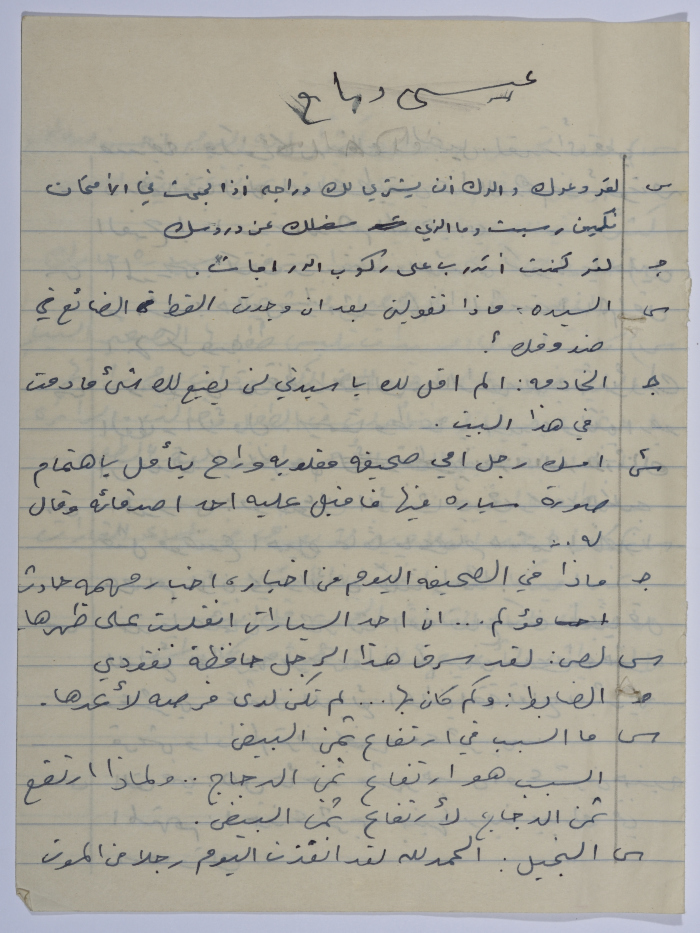 عيسى دباع
س لقد وعدك والدك أن يشتري لك دراجه أذا نجحت في الأمتحان
فكيف رسبت وما الذي شغلك عن دروسك
ج لقد كنت أتدرب على ركوب الدراجات .
س السيده : ماذا تقولين بعد ان وجدت القط الضائع في
صندوقك ؟
ج الخادمه : الم اقل لك يا سيدتي لن يضيع لك شئ مادمت
في هذا البيت .
س امسك رجل امي صحيفه مقلوبه وراح يتأمل باهتمام
صورة سياره فيها فأقبل عليه احد اصدقائه وقال
له ..
ج ماذا في الصحيفه اليوم من اخبار ، اخبار مهمه حادث
مؤلم ... ان احد السيارات انقلبت على ظهرها
س لص : لقد سرق هذا الرجل حافظة نقودي
ج الضابط : وكم كان بها ... لم تكن لدى فرصه لأعدها .
س ما السبب في ارتفاع ثمن البيض
السبب هو ارتفاع ثمن الدجاج .. ولماذا ارتفع
ثمن الدجاج لأرتفاع ثمن البيض .
س البخيل : الحمد لله لقد انقذت اليوم رجلا من الموت